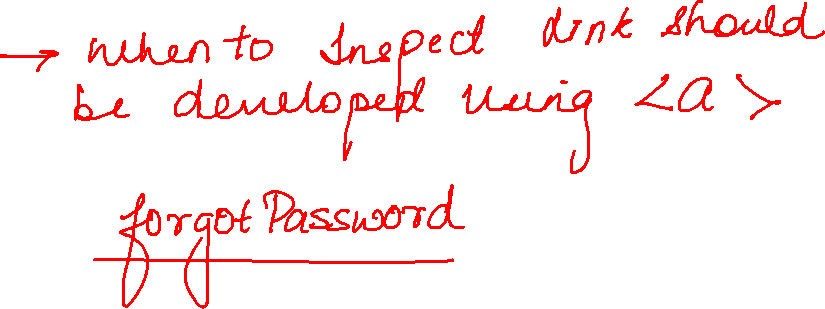 → when to Inspect link should
be developed using <a>
forgotPassword